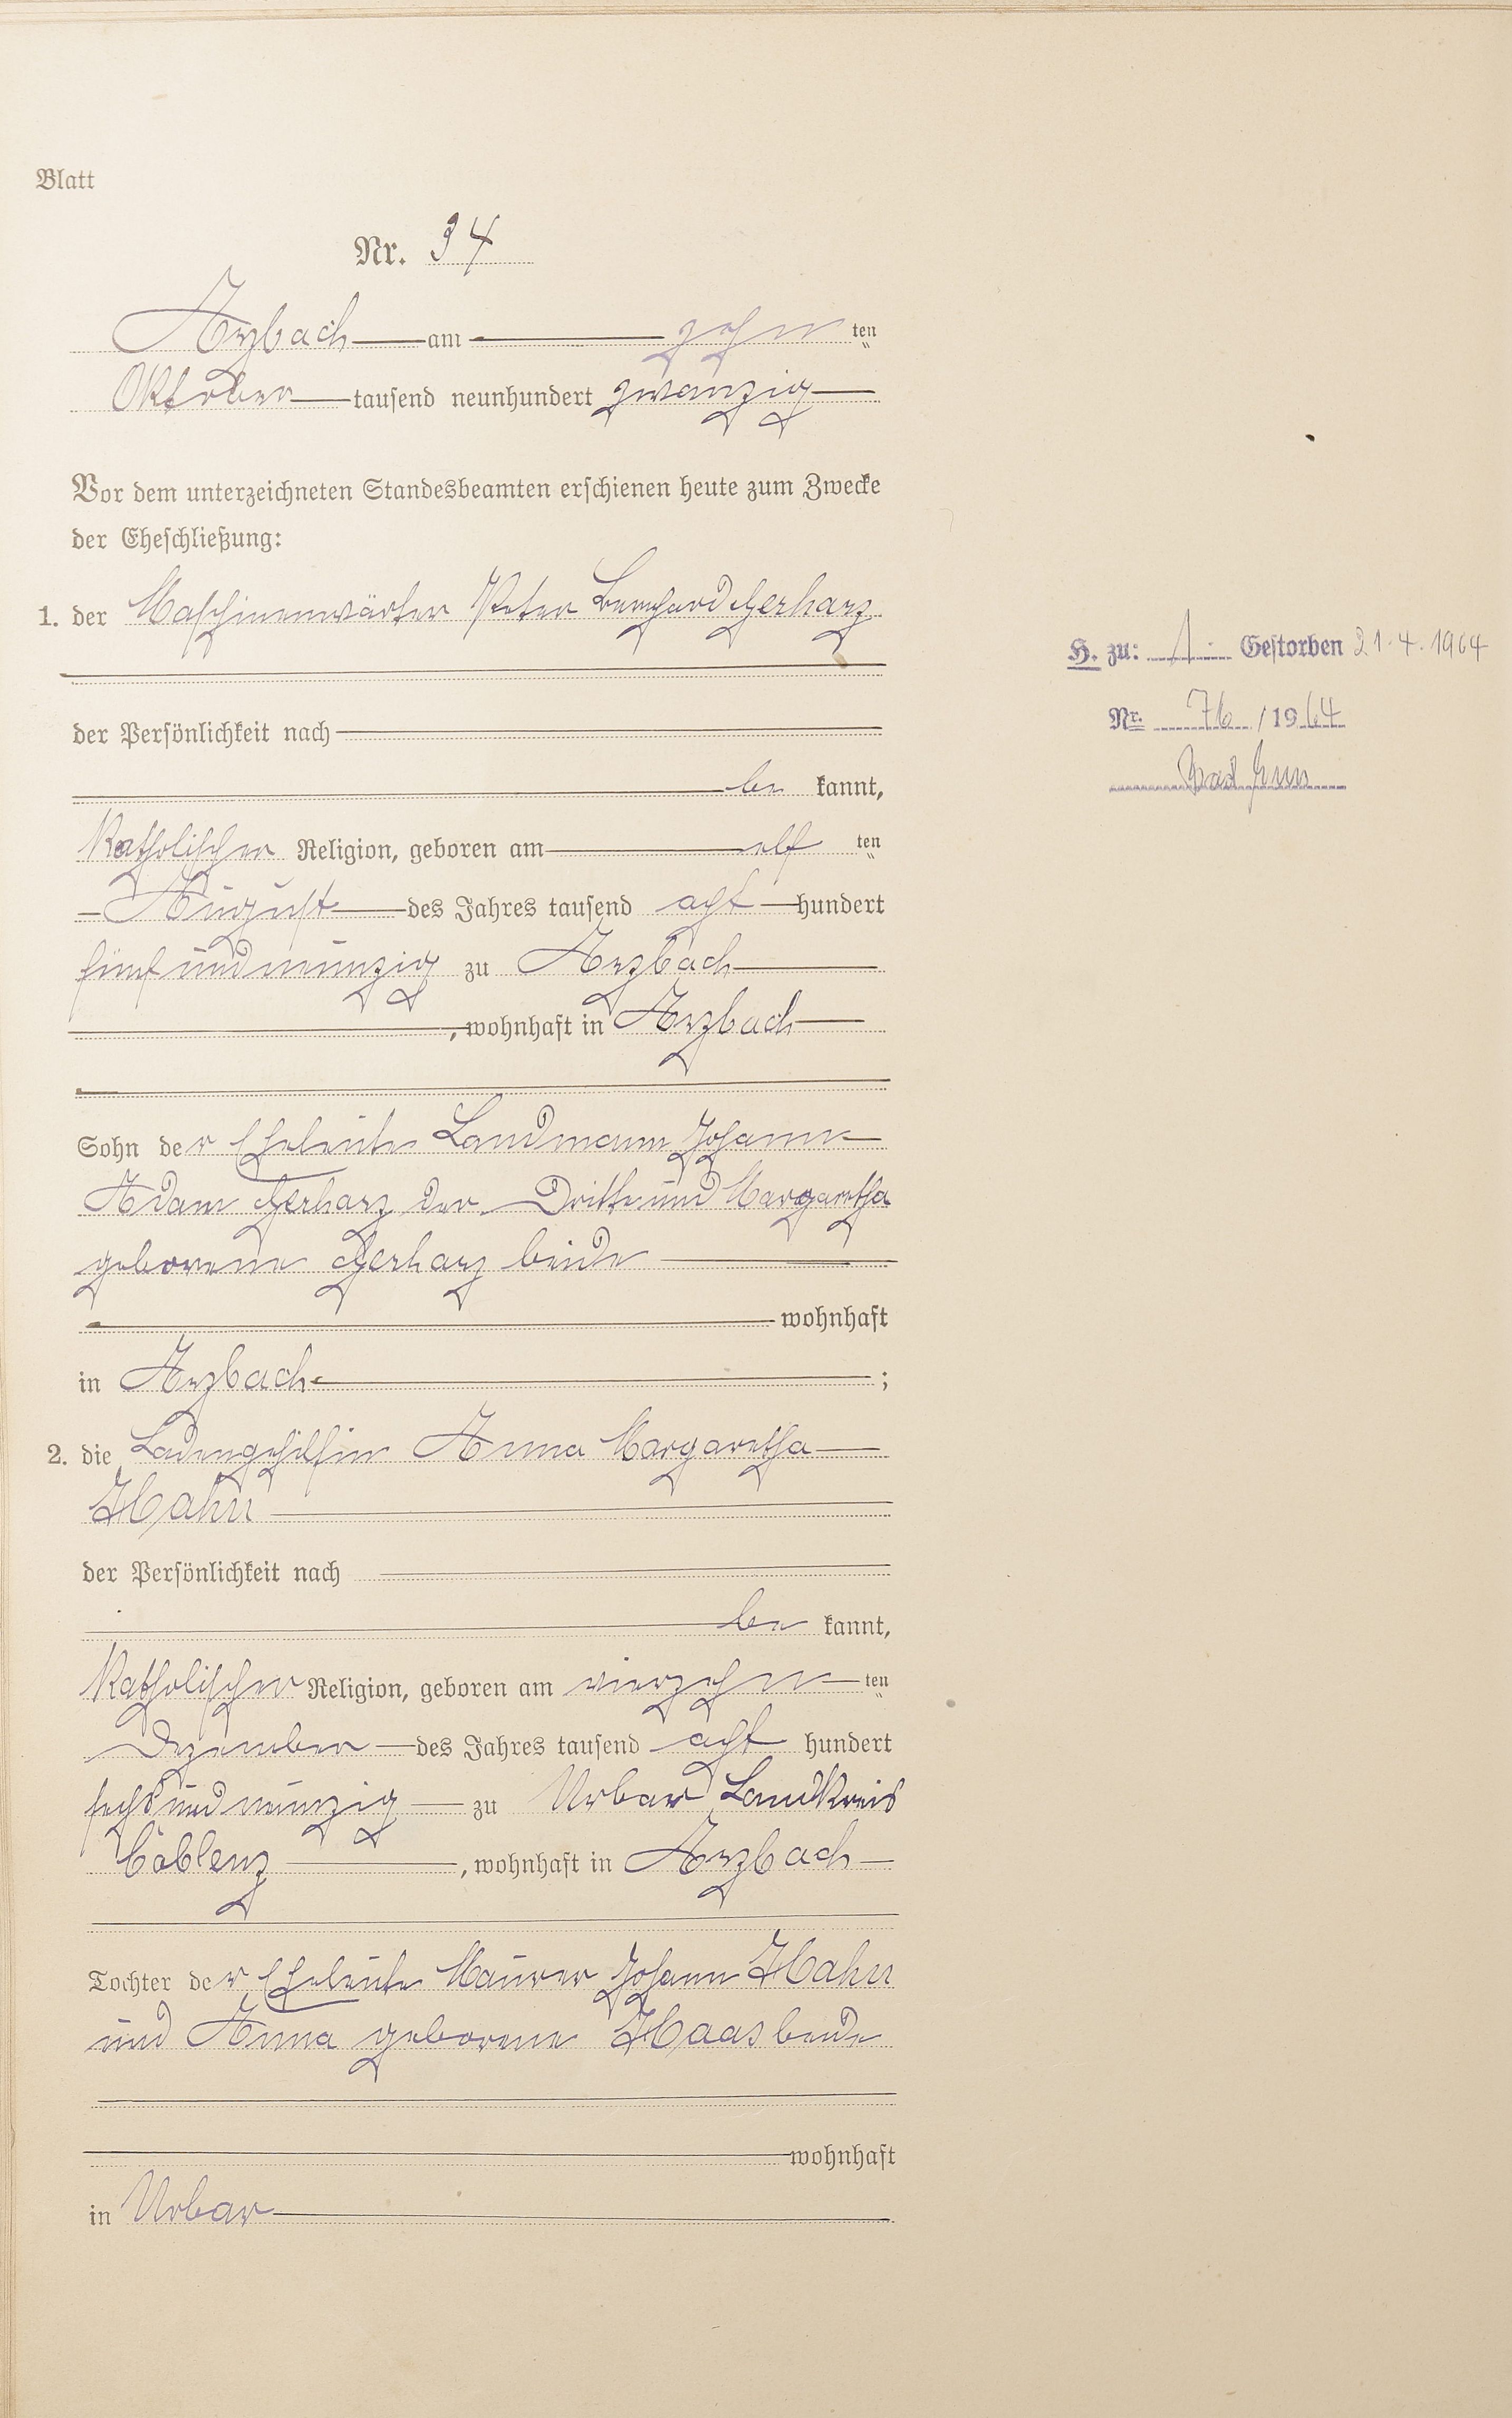 Blatt
Nr. 34
Arzbach am zehn ten
Oktober tausend neunhundert zwanzig
Vor dem unterzeichneten Standesbeamten erschienen heute zum Zwecke
der Eheschließung:
1. der Maschinenwärter Peter Bernhard Gerharz
der Persönlichkeit nach
be kannt,
Katholischer Religion, geboren am elf ten
August des Jahres tausend acht hundert
fünfundneunzig zu Arzbach
, wohnhaft in Arzbach
Sohn der Eheleute Landmann Johann
Adam Gerharz der Dritte und Margaretha
geborene Gerharz beide
wohnhaft
in Arzbach ;
2. die Ladengehilfin Anna Margaretha
Hahn
der Persönlichkeit nach
be kannt,
Katholischer Religion, geboren am vierzehn ten
Dezember des Jahres tausend acht hundert
sechsundneunzig zu Urbar Landkreis
Coblenz , wohnhaft in Arzbach
Tochter der Eheleute Maurer Johann Hahn
und Anna geborene Haas beide
wohnhaft
in Urbar
H. zu: 1 Gestorben 21.4.1964
Nr. 76 / 1964
Bad Ems